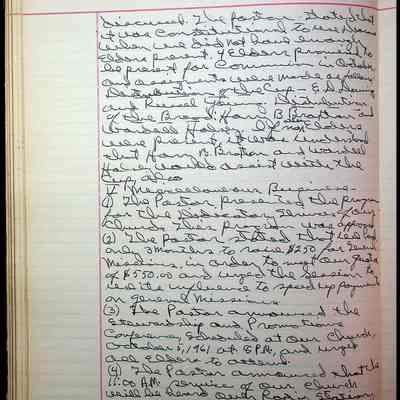 discussed. The Pastor stated that
it was Constitutional to use
when we did not have enough
Elders present. 4 Elders promised to
be present for Communion in October
and assignments were made as follows:
Distribution of the Cup - E.S.
and Russel Young. Distribution
of the Bread: Harry B. Bratton and
Wardell Halsey. If no Elders
were present, it was understood
that Harry B. Bratton and Wardell
Halsey would assist with the
Cup, also
V. Miscellaneous Business -
(1) The Pastor presented the program
for the Dedicatory Services of our
Church. This program was approved
(2) The Pastor stated that we had
only 3 months to raise $250 for General
Missions, in order to meet our quota
of $550.00 and urged the Session to
use its influence to speed up payments
on General Missions.
(3) The Pastor announced the
Stewardship and Promotions
Conference, scheduled at our Church,
October 5, 1961 at 8 P.M., and urged
all Elders to attend.
(4) The Pastor announced that the
11:00 A.M. service of our Church
will be heard over Radio Station,